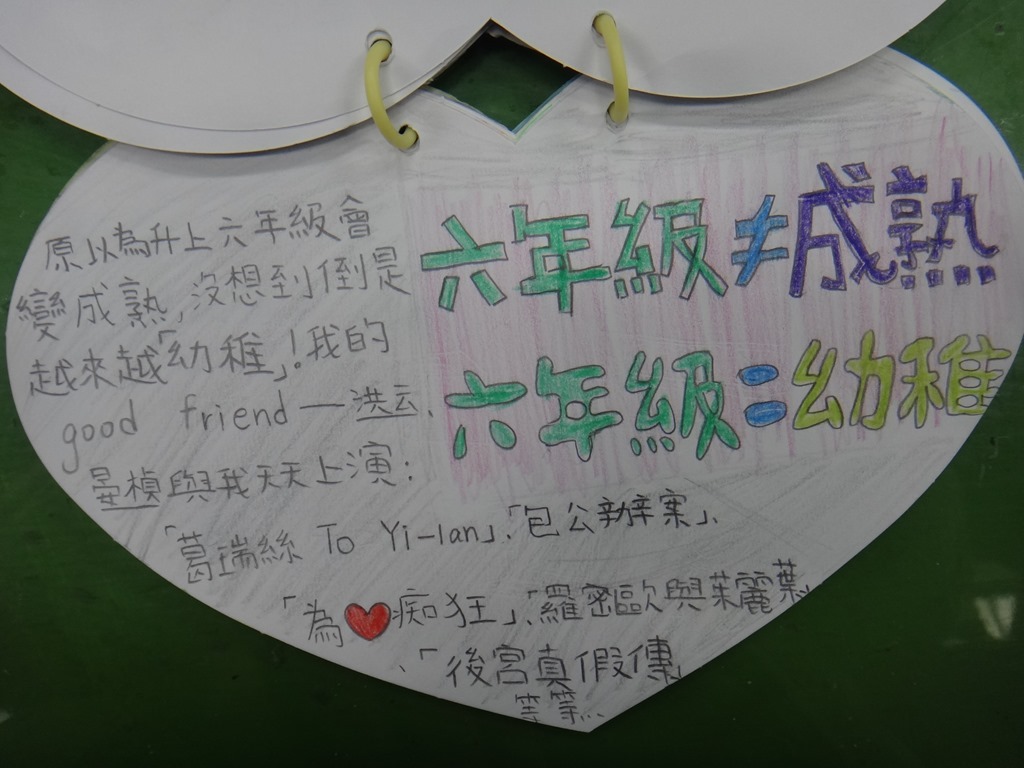 六年級≠成熟
六年級=幼稚
原以為升上六年級會
變成熟,沒想到倒是
越來越「幼稚」!我的
good friend—洪云、
晏楨與我天天上演:
「葛瑞絲 To Yi-lan」、「包公辦案」、
「為❤痴狂」、「羅密歐與茱麗葉」
、「後宮真假傳」
等等…